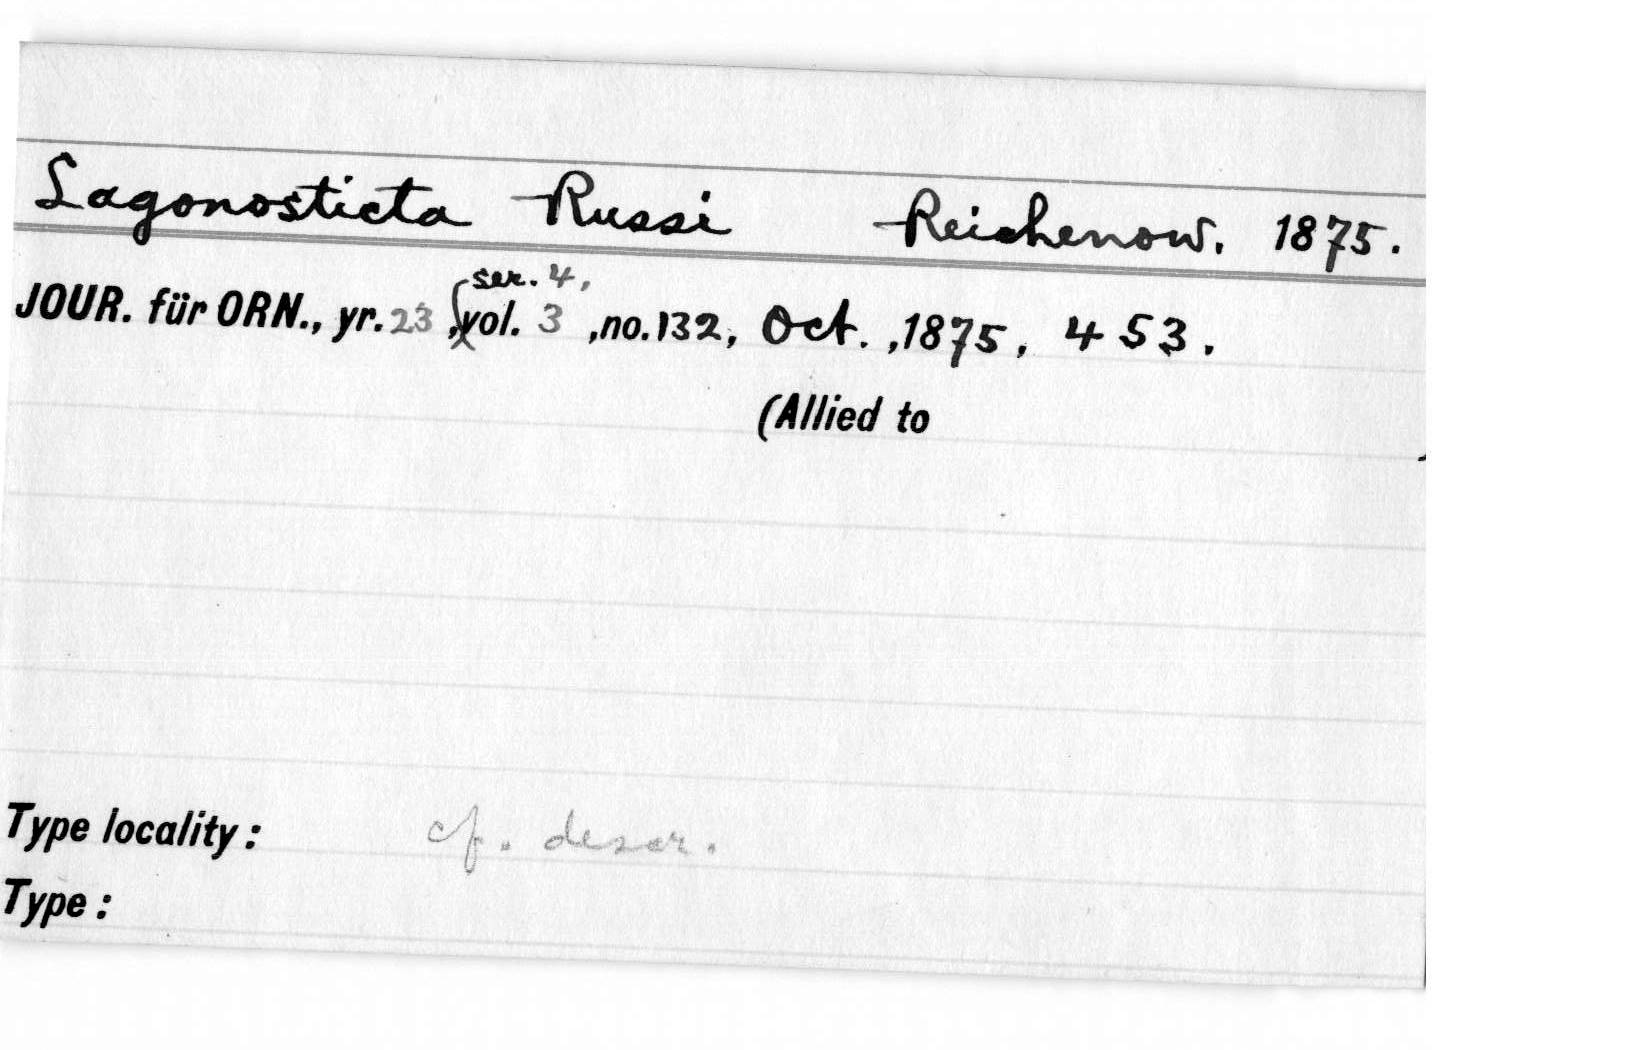 Lagonosticta Russi Reichenow. 1875.
ser. 4,
JOUR. für ORN., yr. 23, vol. 3, no. 132, Oct., 1875, 453.
(Allied to
Type locality: cf. descr.
Type: